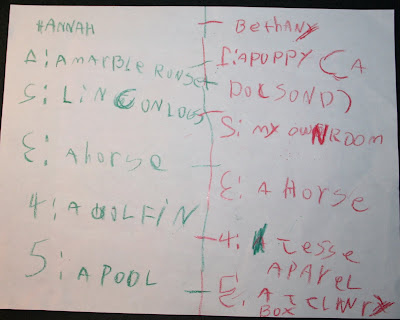 HANNAH
1: A MARBLE RUNSET
2: LINCONLOGS
3: A horse
4: A DOLFIN
5: A POOL
BethANY
1: A PUPPY (A
DOCSOND)
2: my owN ROOM
3: A HORSE
4: A JESSE
APAREL
5: A
BOX